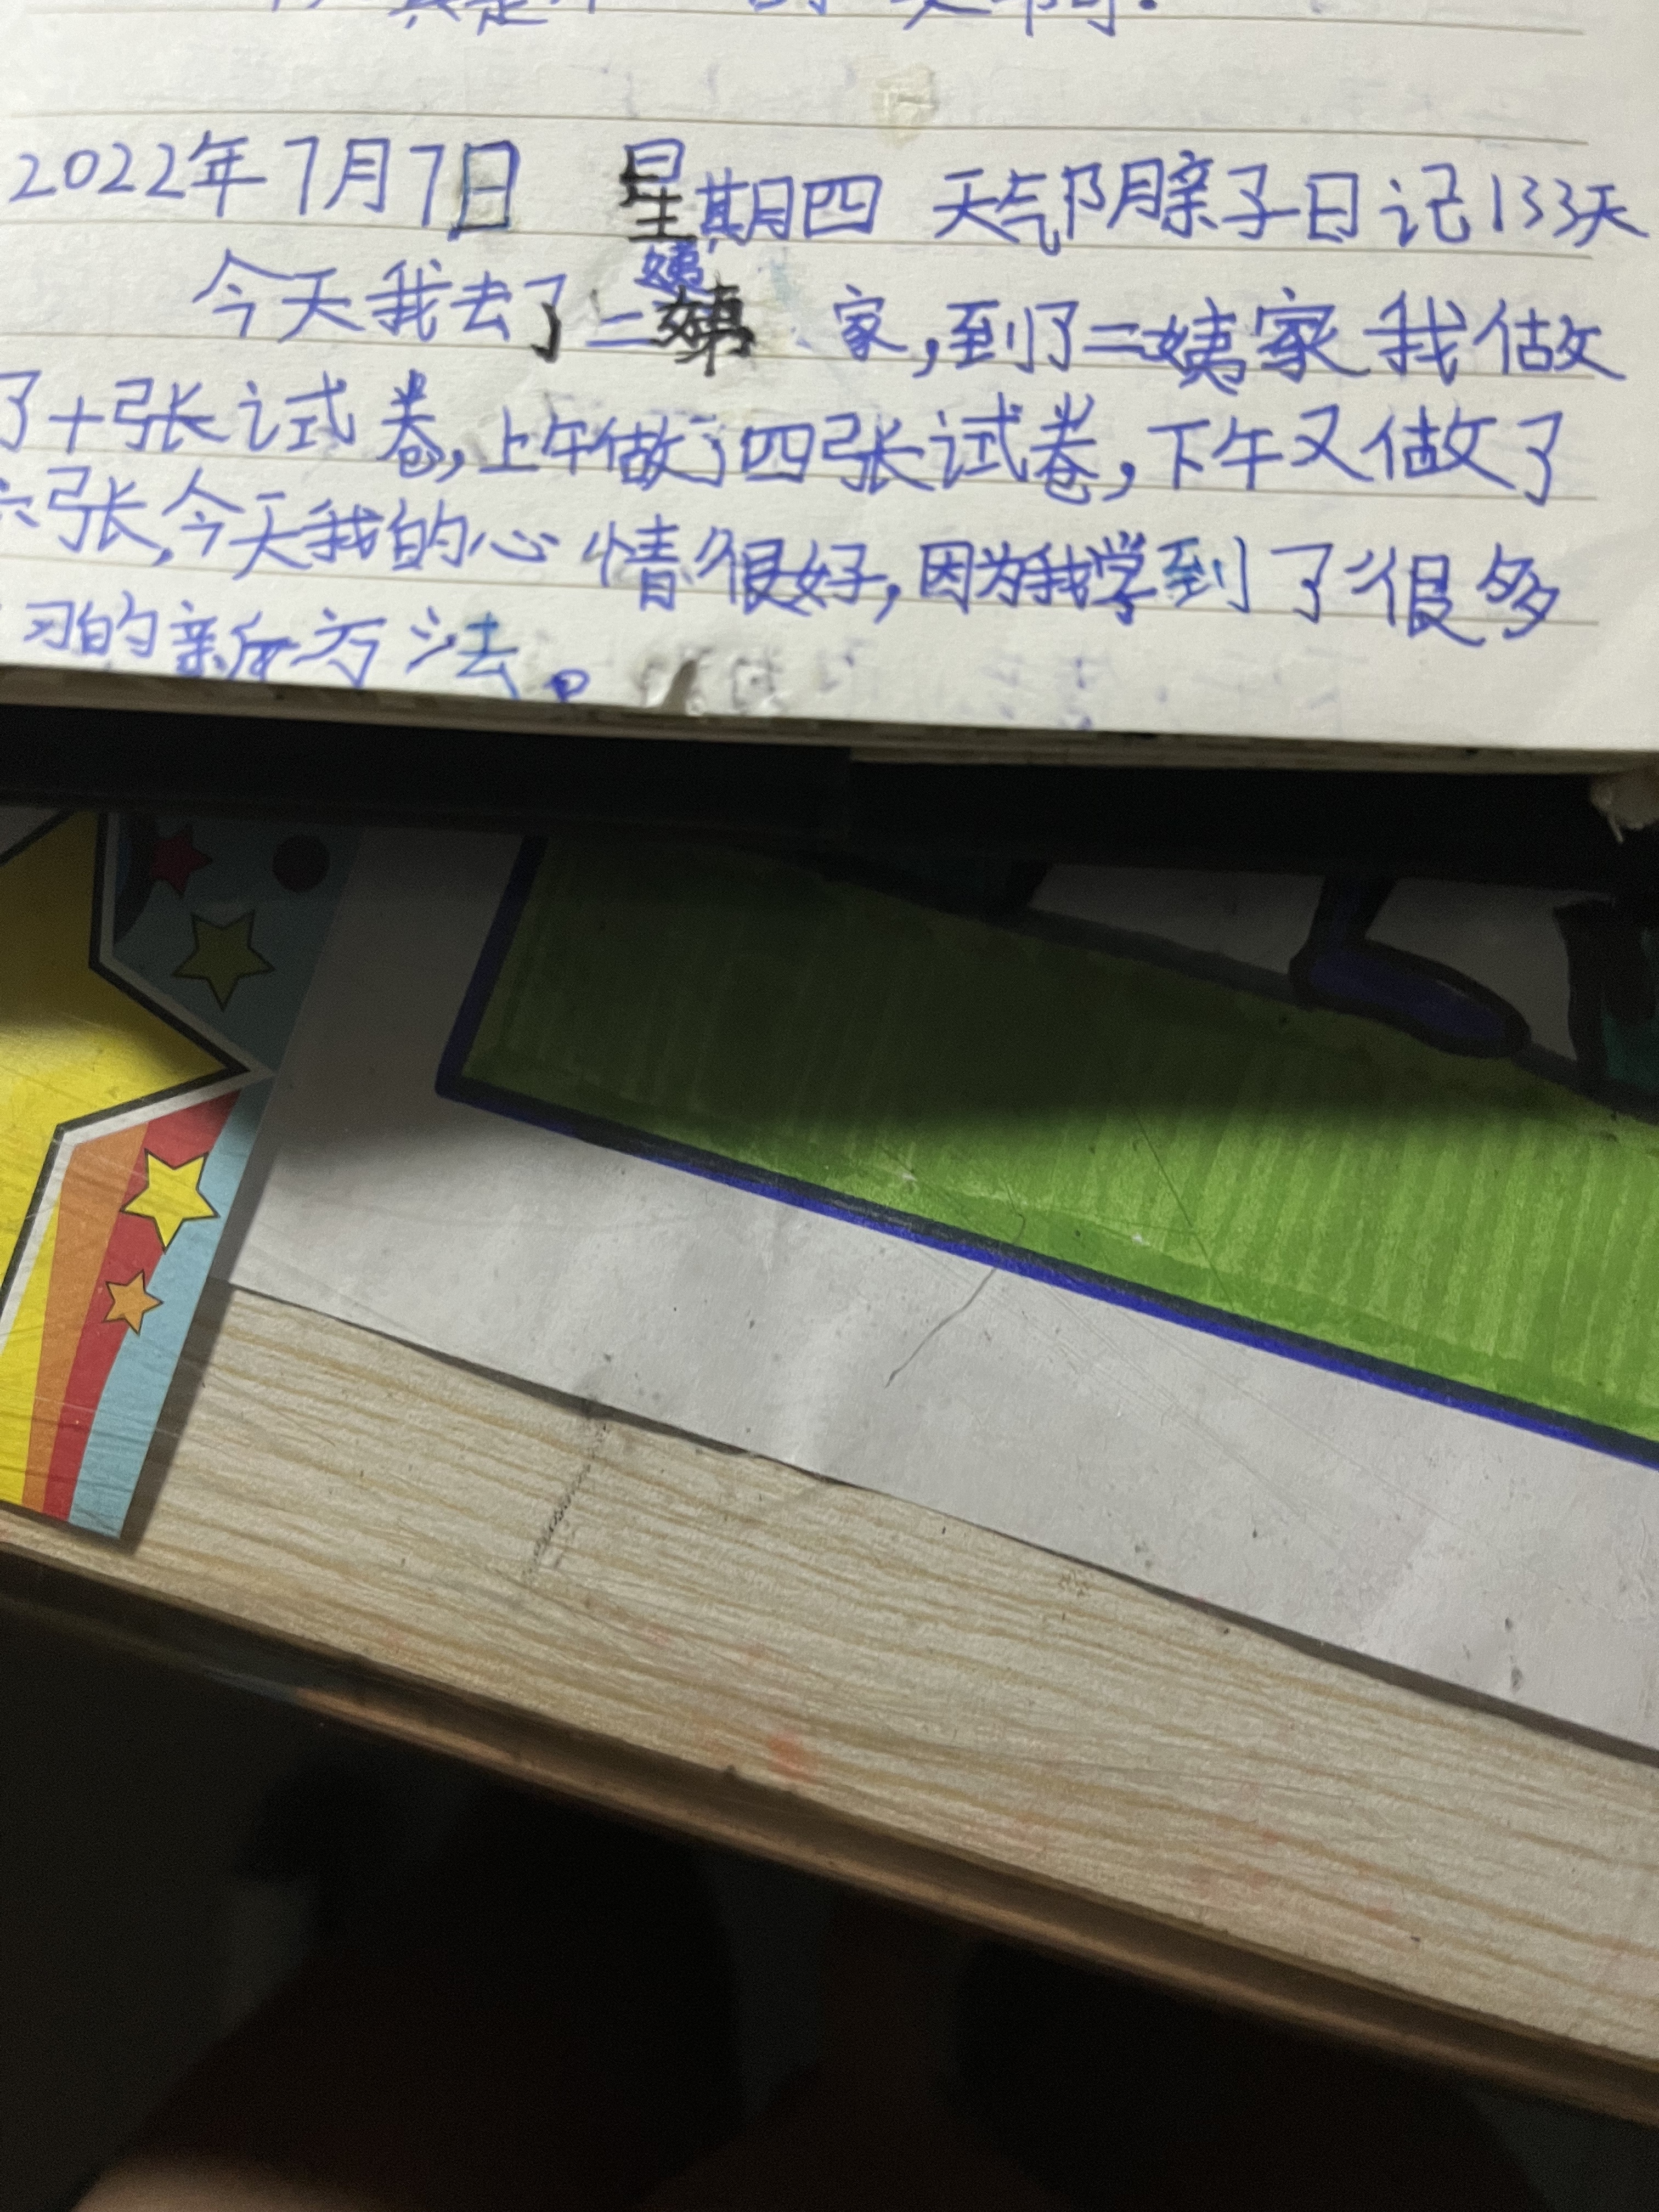 2022年7月7日 星期四 天气阴亲子日记133天
今天我去了二姨家,到了二姨家我做
了十张试卷,上午做了四张试卷,下午又做了
六张,今天我的心情很好,因为我学到了很多
习的新方法。